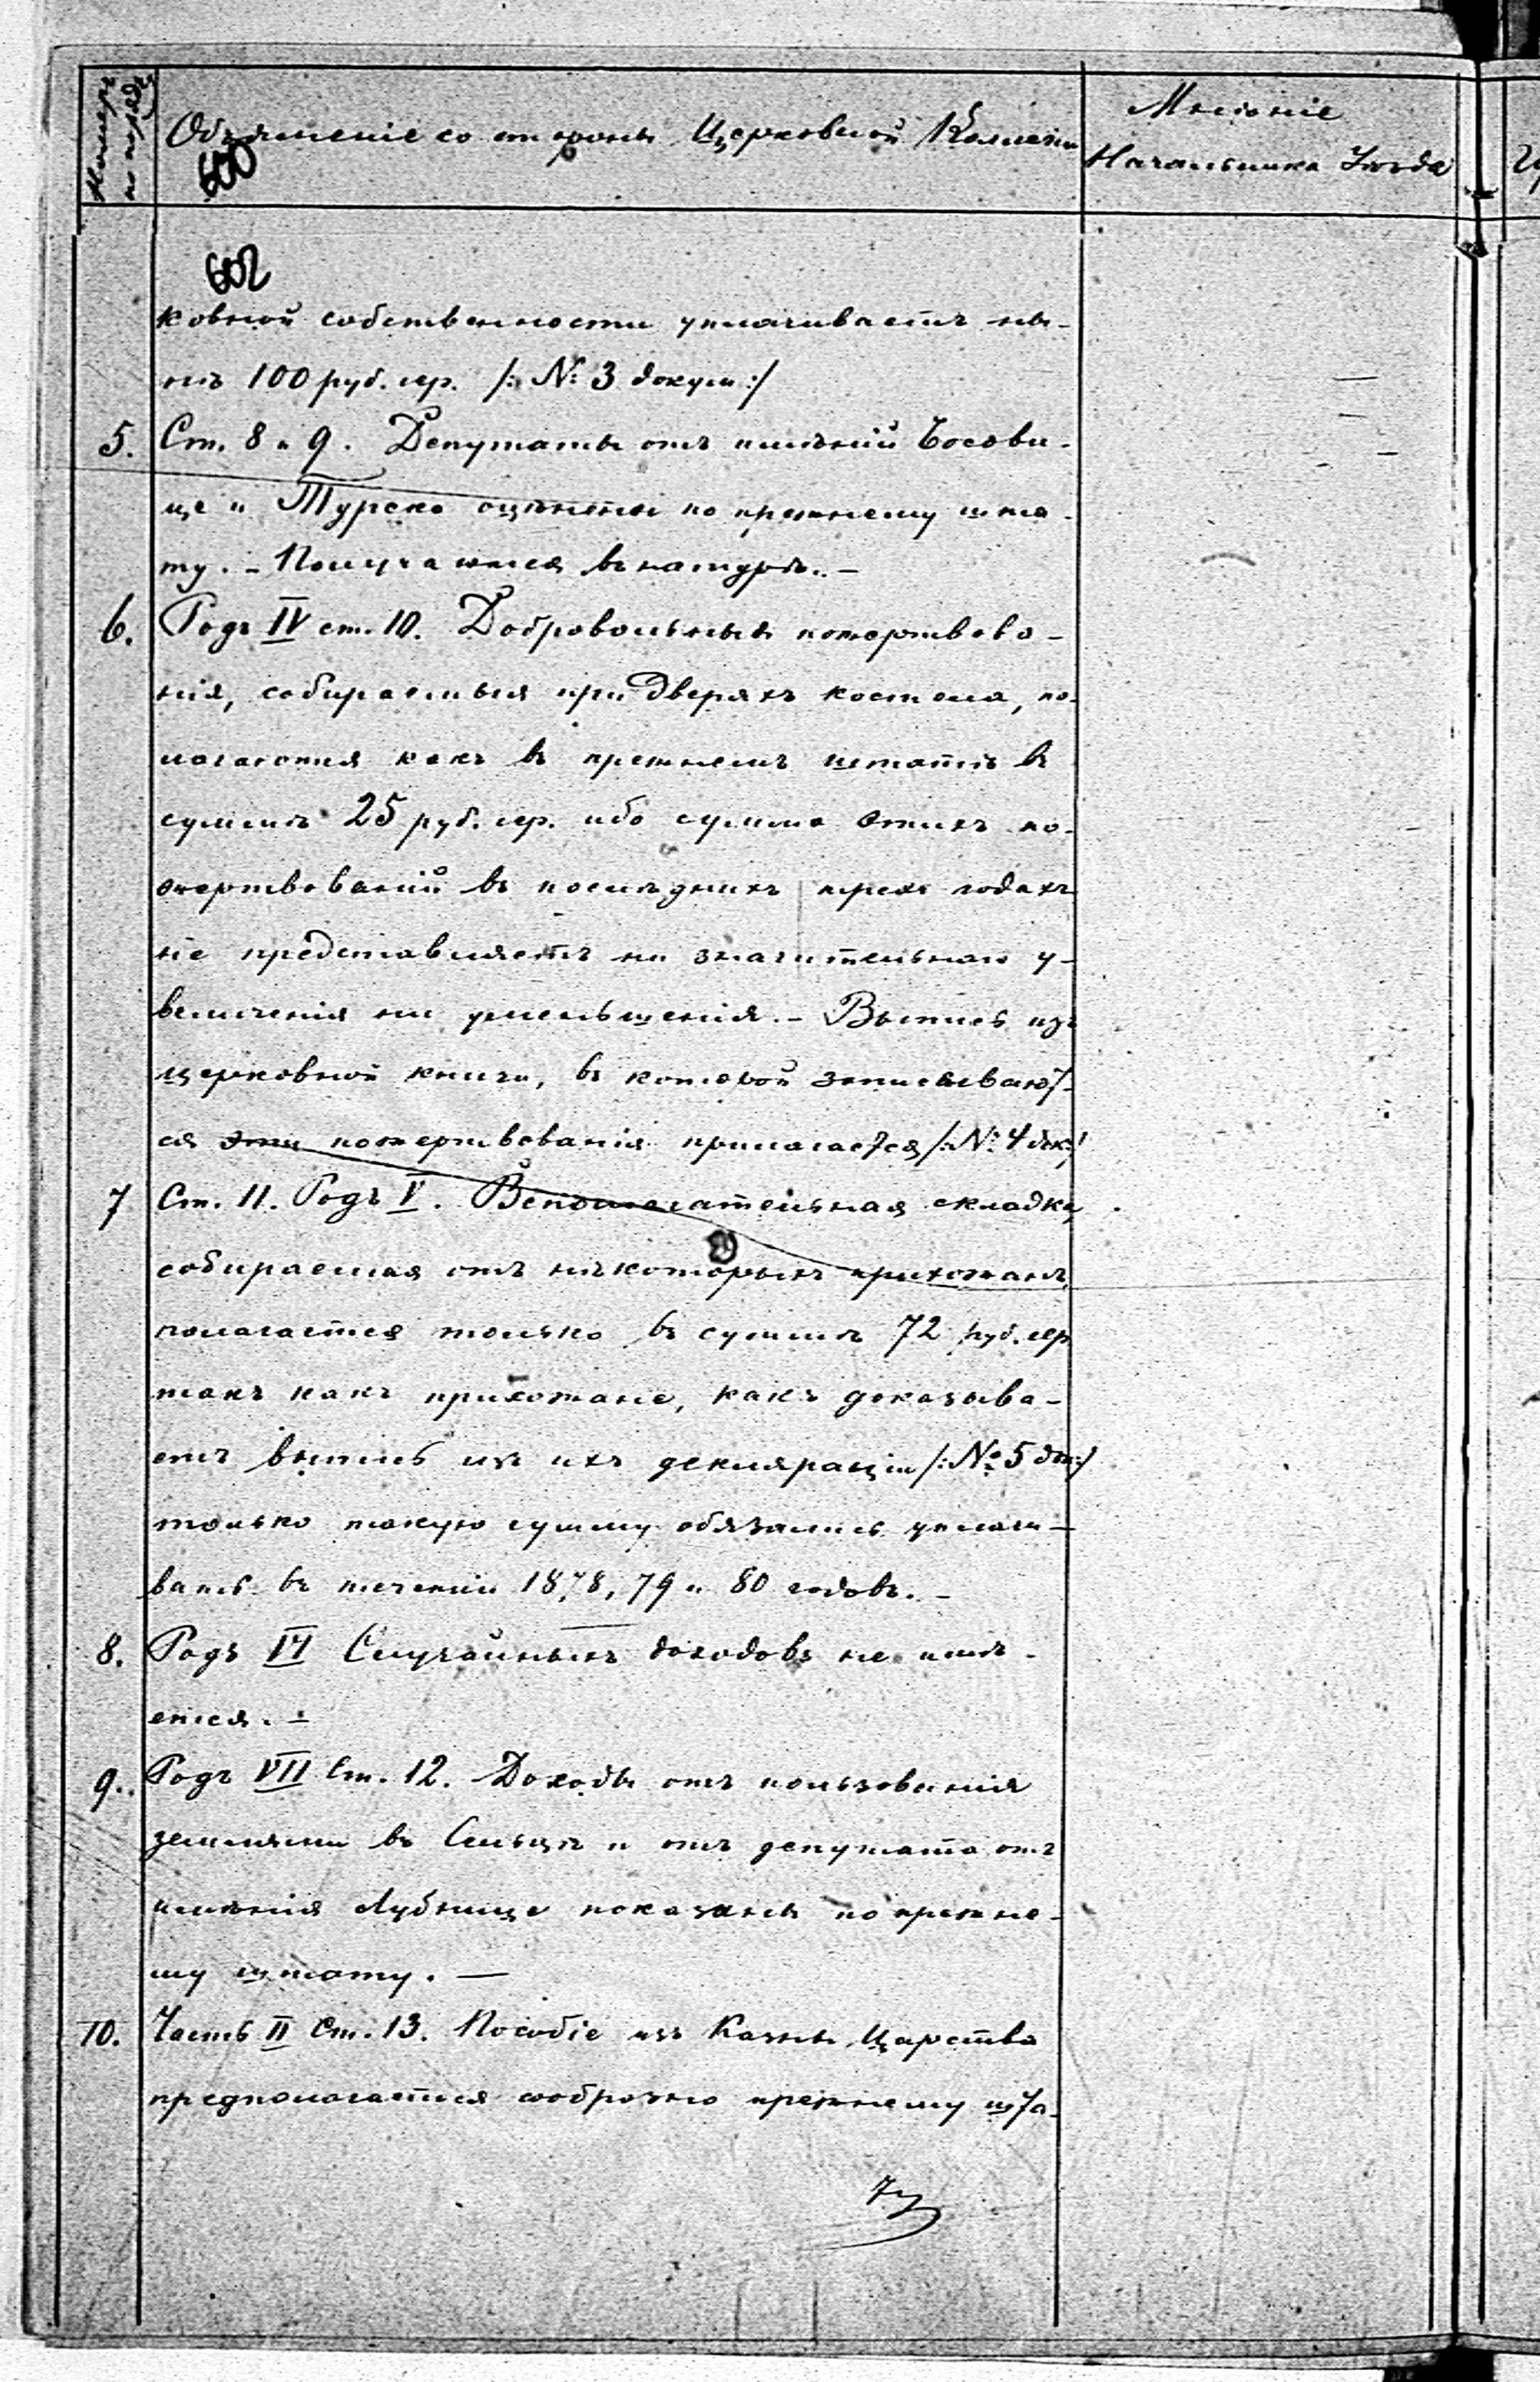 Номеръ по порядку
Объясненіе со стороны Церковной Коллегіи
Мнѣніе
Начальника Уѣзда
600
602
ковной собственности уплачиваетъ ны-
нѣ 100 руб. сер. /: № 3 докум :/
5. Ст. 8 и 9. Депутаты отъ имѣній Босови-
це и Турско оцѣнены по прежнему шта-
ту. – Получаются въ натурѣ. –
6. Родъ IV ст. 10. Добровольныя пожертвова-
нія, собираемыя при дверяхъ костела, по-
лагаются какъ въ прежнемъ штатѣ въ
суммѣ 25 руб. сер. ибо сумма этихъ по-
жертвованій въ послѣднихъ трехъ годахъ
не представляетъ ни значительнаго у-
величенія ни уменьшенія. – Выпись изъ
церковной книги, въ которой записывают-
ся эти пожертвованія прилагается /: № 4 док :/
7 Ст. 11. Родъ V. Вспомогательная складка,
собираемая отъ нѣкоторыхъ прихожанъ,
полагается только въ суммѣ 72 руб. сер
такъ какъ прихожане, какъ доказыва-
етъ выпись изъ ихъ декляраціи /: № 5 док :/
только такую сумму обязались уплачи-
вать въ теченіи 1878, 79 и 80 годовъ. –
8. Родъ VI Случайныхъ доходовъ не имѣ-
ется. –
9. Родъ VII Ст. 12. Доходы отъ пользованія
землями въ Сельцѣ и отъ депутата отъ
имѣнія Лубнице показаны по прежне-
му штату. —
10. Часть II Ст. 13. Пособіе изъ Казны Царства
предполагается сообразно прежнему шта-
ту